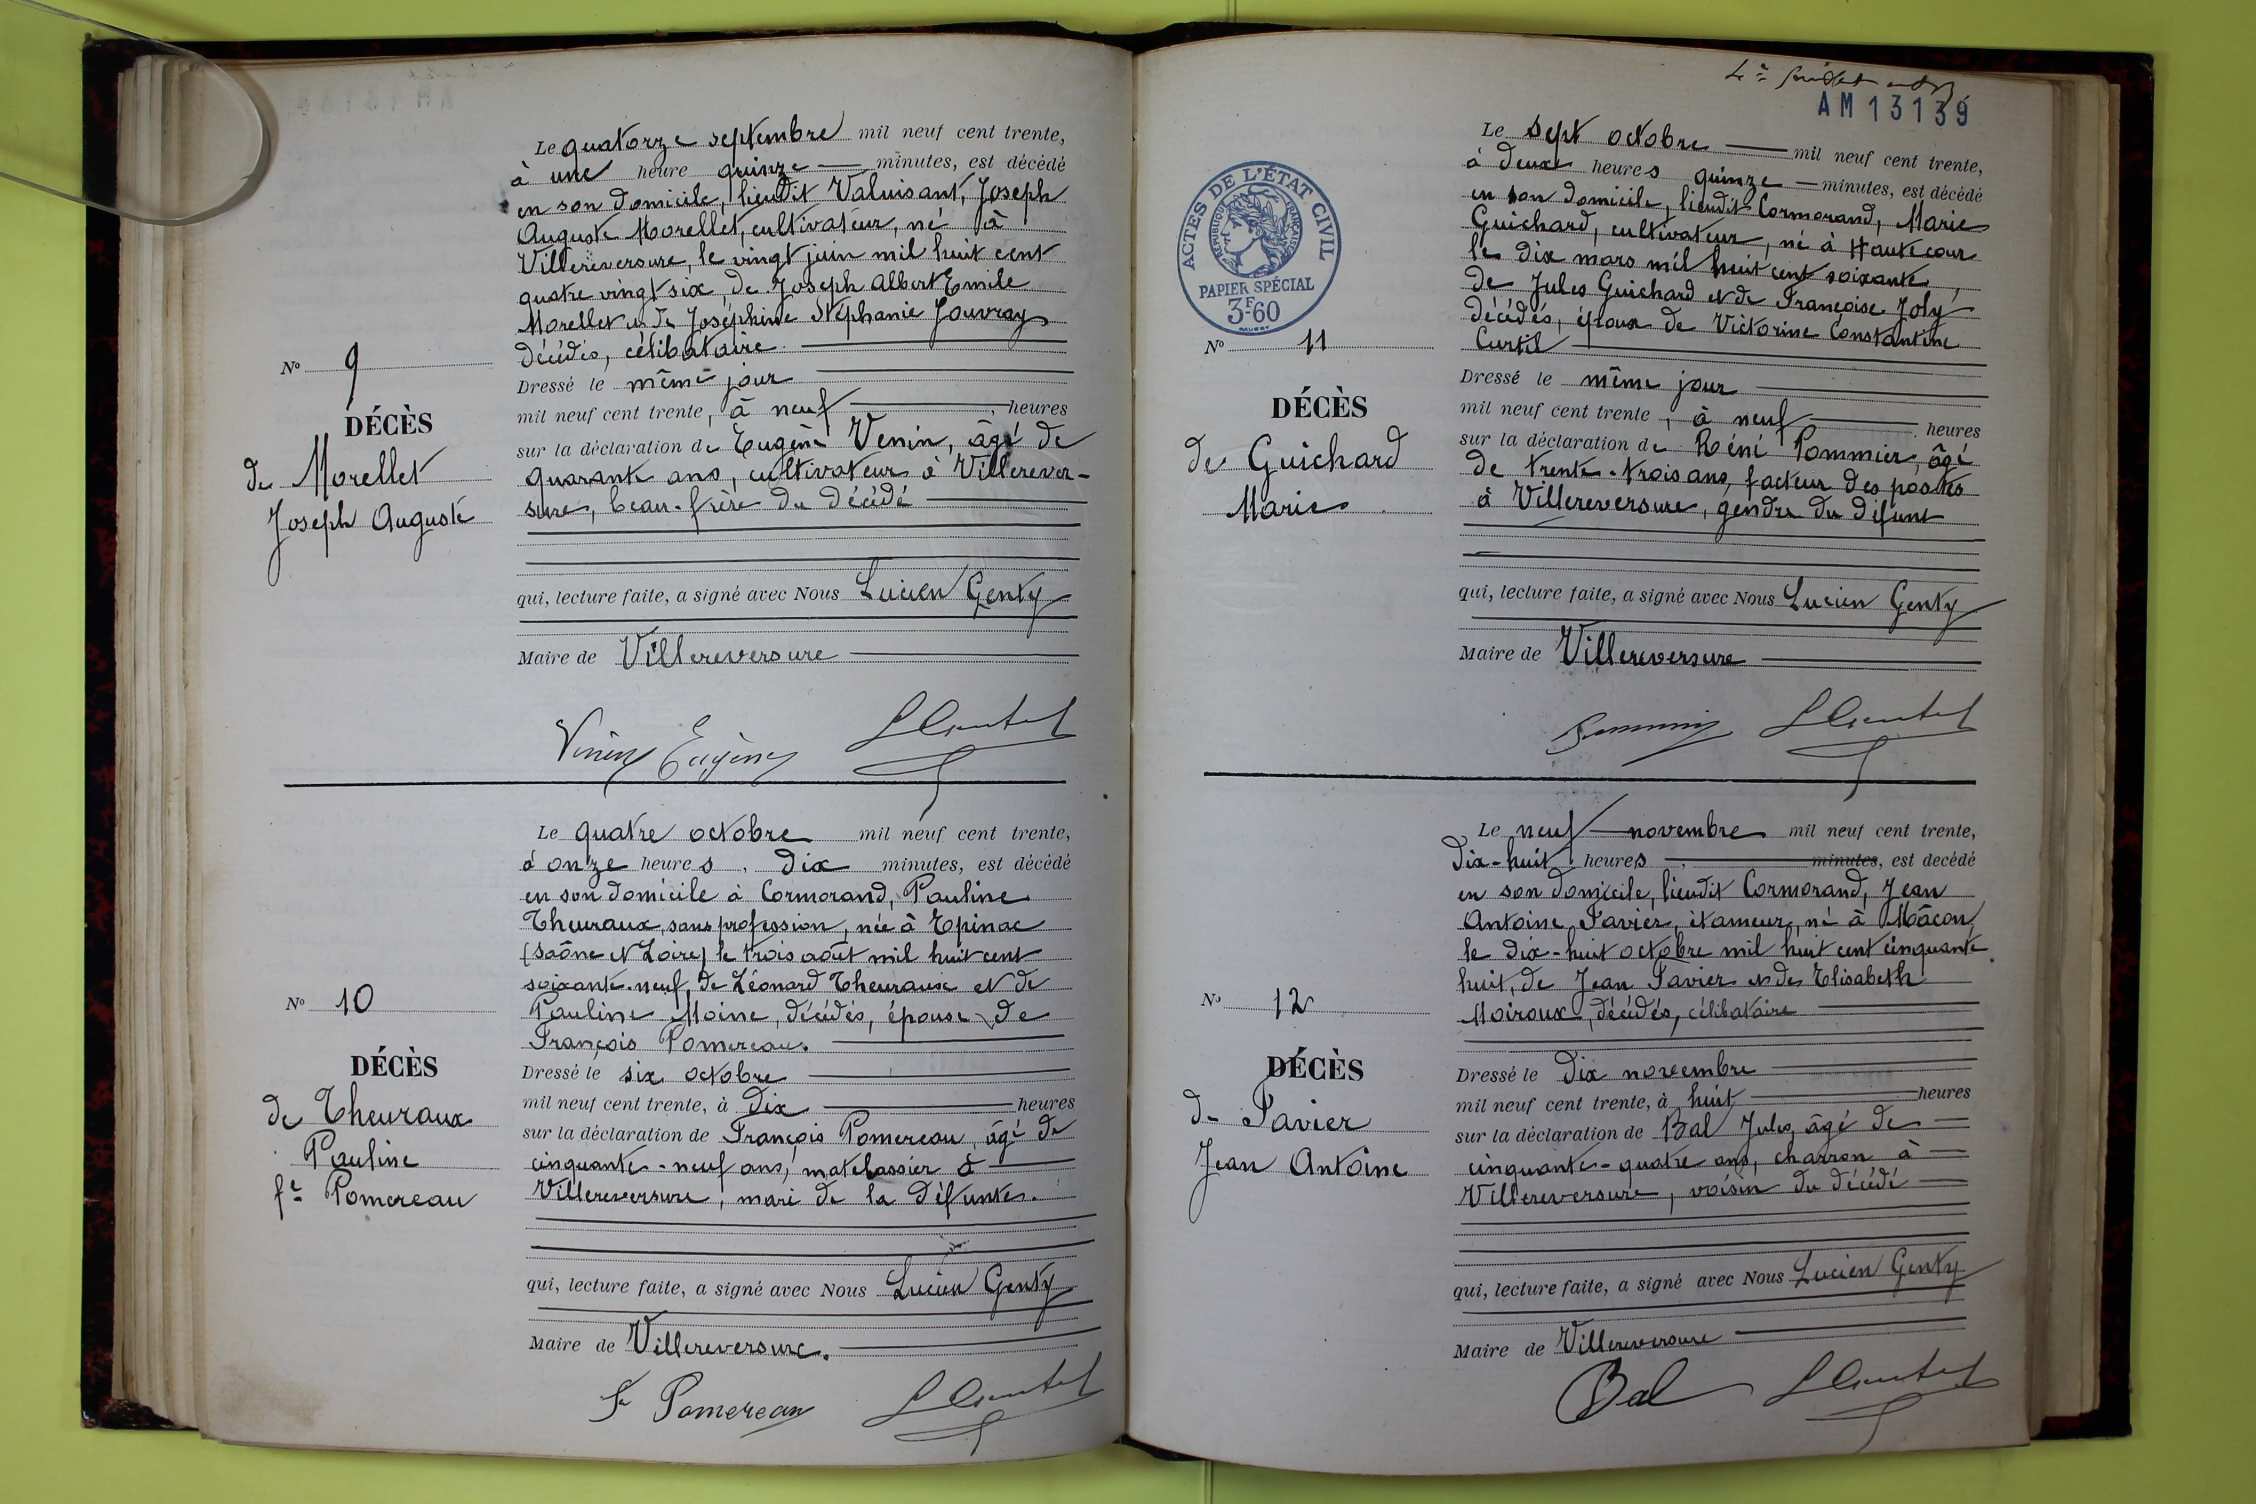 Le quatorze septembre mil neuf cent trente,
à une heure quinze minutes, est décédé
en son domicile, lieudit Valuisant, Joseph
Auguste Morellet, cultivateur, né à
Villereversure, le vingt juin mil huit cent
quatre vingt six, de Joseph Albert Emile
Morellet et de Joséphine Stéphanie Jouvray
décédés, célibataire
Dressé le même jour
mil neuf cent trente, à neuf heures
sur la déclaration de Eugène Venin, âgé de
quarante ans, cultivateur à Villerever-
sure, beau-frère du décédé
qui, lecture faite, a signé avec Nous Lucien Genty
Maire de Villereversure
Venin Eugène
No 9
DÉCÈS
de Morellet
Joseph Auguste
Le quatre octobre mil neuf cent trente,
à onze heures, dix minutes, est décédé
en son domicile à Cormorand, Pauline
Theuraux, sans profession, née à Epinac
(Saône et Loire) le trois août mil huit cent
soixante-neuf, de Léonard Theuraux et de
Pauline Moine, décédés, épouse de
François Pomereau.
Dressé le six octobre
mil neuf cent trente, à dix heures
sur la déclaration de François Pomereau, âgé de
cinquante-neuf ans, matelassier à
Villereversure, mari de la défunte.
qui, lecture faite, a signé avec Nous Lucien Genty
Maire de Villereversure.
Pomereau
No 10
DÉCÈS
de Theuraux
Pauline
fe Pomereau
AM 13139
ACTES DE L'ÉTAT CIVIL
RÉPUBLIQUE FRANÇAISE
PAPIER SPÉCIAL
3F60
Le sept octobre mil neuf cent trente,
à deux heures quinze minutes, est décédé
en son domicile, lieudit Cormorand, Marie
Guichard, cultivateur, né à Hautecour
le dix mars mil huit cent soixante,
de Jules Guichard et de Françoise Joly
décédés, époux de Victorine Constantine
Curtil
Dressé le même jour
mil neuf cent trente, à neuf heures
sur la déclaration de Réné Pommier, âgé
de trente-trois ans, facteur des postes
à Villereversure, gendre du défunt
qui, lecture faite, a signé avec Nous Lucien Genty
Maire de Villereversure
No 11
DÉCÈS
de Guichard
Marie
Le neuf novembre mil neuf cent trente,
dix-huit heures minutes, est decédé
en son domicile, lieudit Cormorand, Jean
Antoine Pavier, étameur, né à Mâcon,
le dix-huit octobre mil huit cent cinquante
huit, de Jean Pavier et de Elisabeth
Moiroux, décédés, célibataire
Dressé le dix novembre
mil neuf cent trente, à huit heures
sur la déclaration de Bal Jules, âgé de
cinquante-quatre ans, charron à
Villereversure, voisin du décédé
qui, lecture faite, a signé avec Nous Lucien Genty
Maire de Villereversure
Bal
No 12
DÉCÈS
de Pavier
Jean Antoine